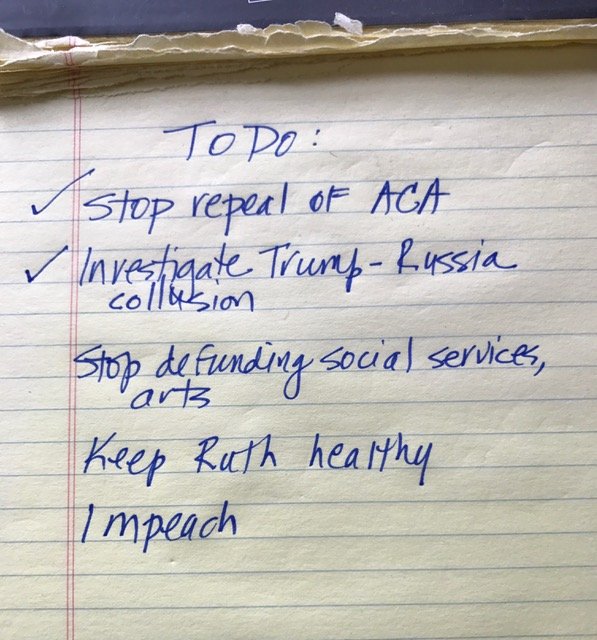 To Do:
✓ Stop repeal of ACA
✓ Investigate Trump-Russia
collusion
Stop defunding social services,
arts
Keep Ruth healthy
Impeach